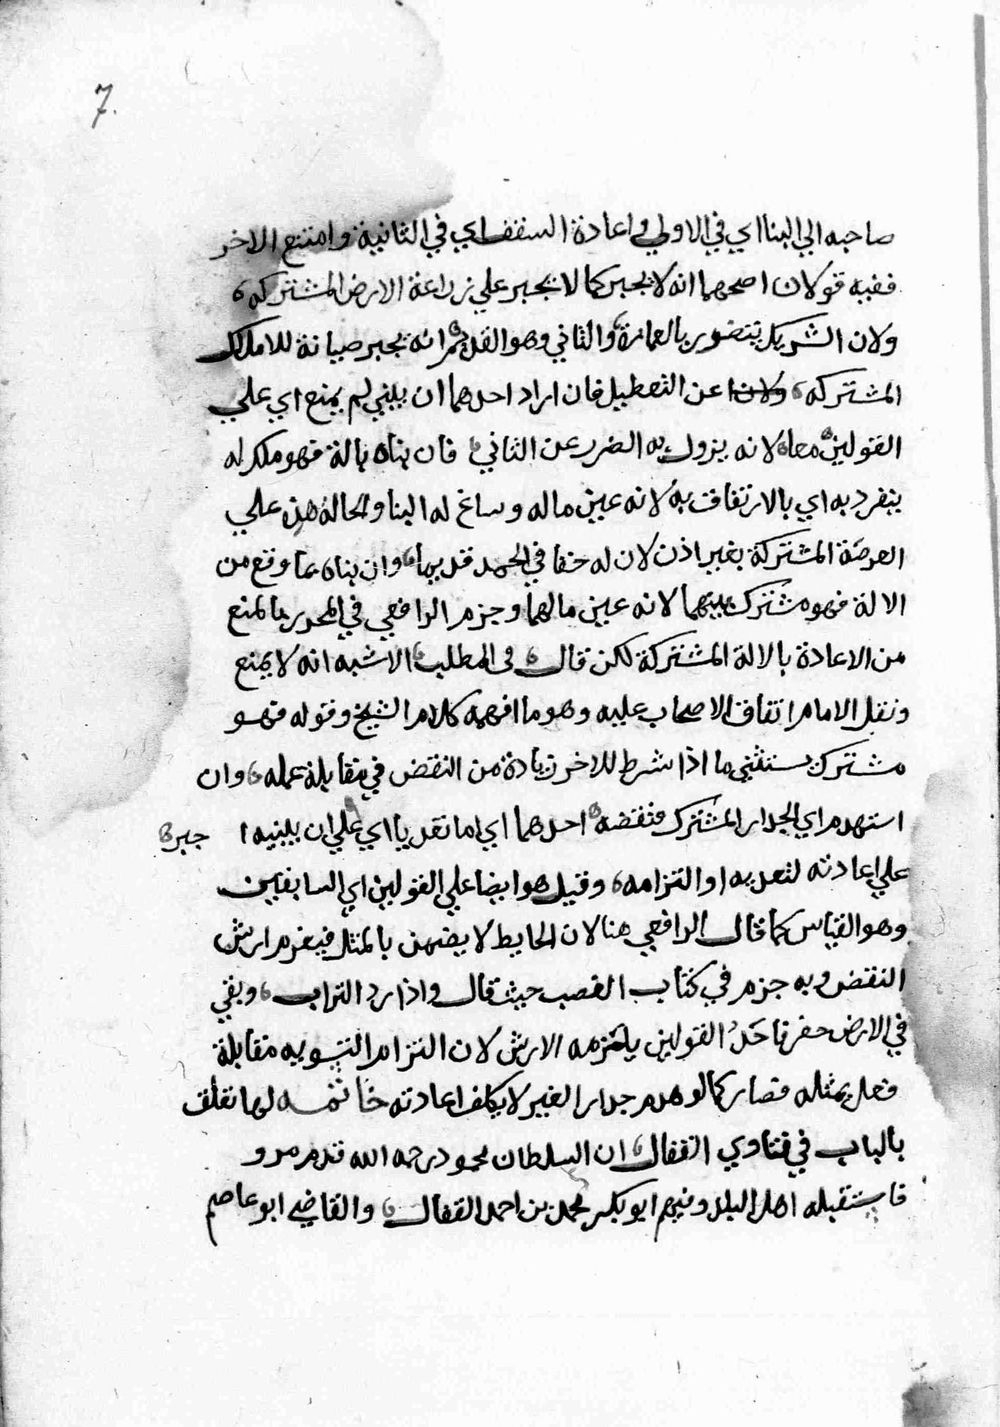 7.
صاحبه الي البنا اي في الاولي واعادة السقف اي في الثانية وامتنع الاخر
ففيه قولان اصحهما انه لا يجبر كما لا يجبر علي زراعة الارض المشتركه
ولان الشريك يتضرر بالعمارة والثاني وهو القديم انه يجبر صيانة للاملاك
المشتركه ولانها عن التعطيل فان اراد احدهما ان يبني لم يمنع اي علي
القولين معا لانه يزول به الضرر عن الثاني فان بناه بالة فهو ملك له
ينفرد به اي بالارتفاق به لانه عين ماله وساغ له البنا والحالة هذه علي
العرصة المشتركة بغير اذن لان له حقا في الحمل قديما وان بناه بما وقع من
الالة فهو مشترك بينهما لانه عين مالهما وجزم الرافعي في المحرر بالمنع
من الاعادة بالالة المشتركة لكن قال في المطلب الاشبه انه لا يمنع
ونقل الامام اتفاق الاصحاب عليه وهو ما افهمه كلام الشيخ وقوله فهو
مشترك يستثني ما اذا شرط للاخر زيادة من النقض في مقابلة عمله وان
استهدم اي الجدار المشترك فنقضه احدهما اي اما تعديا اي علي ان يبنيه ا جبر
علي اعادته لتعديه او التزامه وقيل هو ايضا علي القولين اي السابقين
وهو القياس كما قال الرافعي هنا لان الحايط لا يضمن بالمثل فيغرم ارش
النقض وبه جزم في كتاب الغصب حيث قال واذا رد التراب وبقي
في الارض حفر فاحد القولين يلزمه الارش لان التزام التسويه مقابلة
فعل بمثله فصار كما لو هدم جدار الغير لا يكلف اعادته خاتمه لها تعلق
بالباب في فتاوي القفال ان السلطان محمود رحمه الله قدم مرو
فاستقبله اهل البلد وفيهم ابو بكر محمد بن احمد القفال والقاضي ابو عاصم